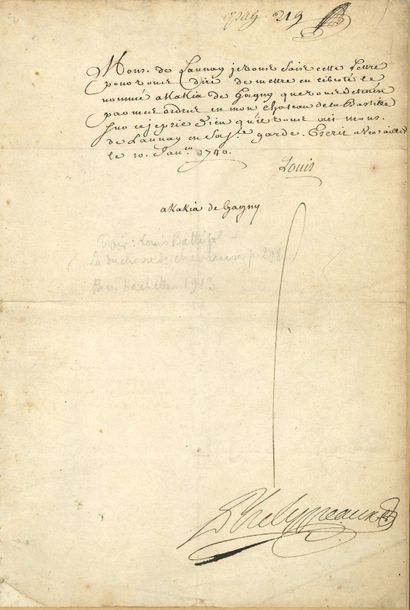 pag 219
Mons. de Launay je vous fais cette Lettre
pour vous dire de mettre en liberté le
nommé akakia de Gagny que vous detenez
par mes ordres en mon chateau de la Bastille
Sur ce je prie Dieu qu'il vous ait Mons.
de Launay en sa Ste garde. Ecrit a Versailles
le 10. Janer 1740.
Louis
akakia de Gagny
Voir: Louis Batiffol
La duchesse de chevreuse p. 298
Paris Hachette 1913
Phelypeaux